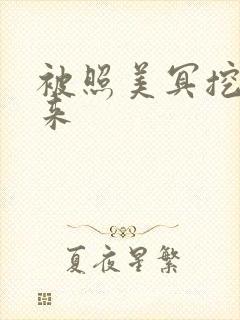 被照美冥挖
来
夏夜星繁